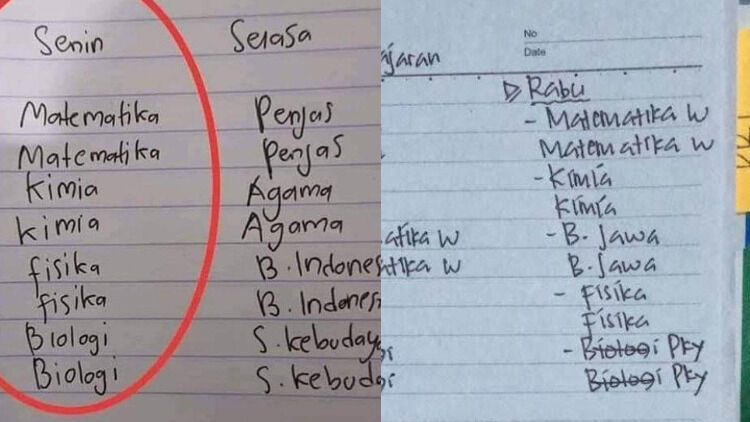 Senin
Matematika
Matematika
Kimia
kimia
fisika
fisika
Biologi
Biologi
Selasa
Penjas
Penjas
Agama
Agama
B.Indones
B.Indones
S.kebuday
S.kebud
ajaran
atika W
tika W
No
Date
Rabu
- Matematika W
Matematika W
- Kimia
Kimia
- B. Jawa
B. Jawa
- Fisika
Fisika
- Biologi Pky
Biologi Pky